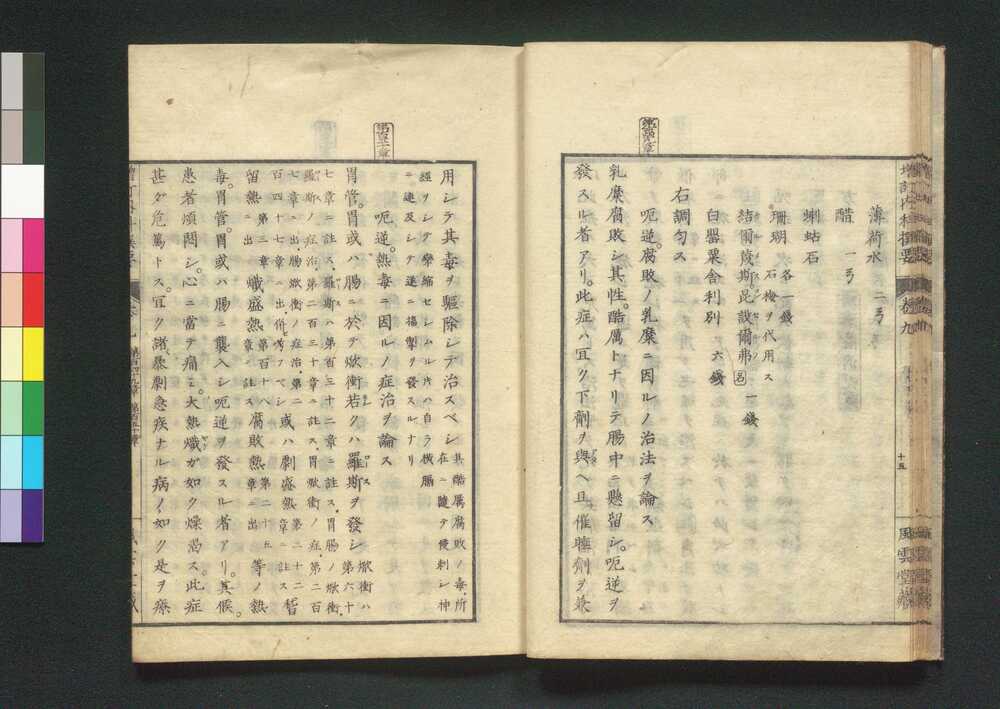 薄荷水 二弓
醋 一弓
蜊蛄石
珊瑚 各一錢 石梅ヲ代用ス
結爾篾斯昆設爾弗 呂 一錢
白罌粟舎利別 六錢
右調勻ス
呃逆。腐敗ノ乳糜ニ因ルノ治法ヲ論ス
乳糜腐敗シ其性。酷厲トナリテ腸中ニ懸留シ。呃逆ヲ
發スル者アリ。此症ハ宜ク下劑ヲ與ヘ且催睡劑ヲ兼
增訂内科撰要 卷九
十五
風雲堂藏
用シテ其毒ヲ驅除シテ治スベシ 其酷厲腐敗ノ毒。所在ニ隨テ侵刺シ神
經ヲシテ攣縮セシムル片ハ自ラ機腸ニ連及シテ遂ニ搐掣ヲ發スルナリ
第百五十章
呃逆。熱毒ニ因ルノ症治ヲ論ス
胃管。胃或ハ腸ニ於テ焮衝若クハ羅斯ヲ發シ 焮衝ハ第六十
七章ニ註ス。羅斯ハ第百三十二章ニ註ス。胃腸ノ焮衝。
羅斯ノ症治。第二百三十章ニ註ス。胃焮衝ノ症。第二百
七章ニ出。腸焮衝ノ症治。第二
百四十七章ニ出。併考フベシ 或ハ劇盛熱 第二十二章ニ註ス 稽
留熱 第三章ニ出 熾盛熱 第百十八章ニ註ス 腐敗熱 第二十五章ニ出 等ノ熱
毒。胃管。胃或ハ腸ニ襲入シ呃逆ヲ發スル者アリ。其候。
患者煩悶シ。心ニ當テ痛ミ。大熱熾ガ如ク燥渇ス。此症
甚ダ危篤トス。宜ク諸暴劇急疾ナル病ノ如ク是ヲ療